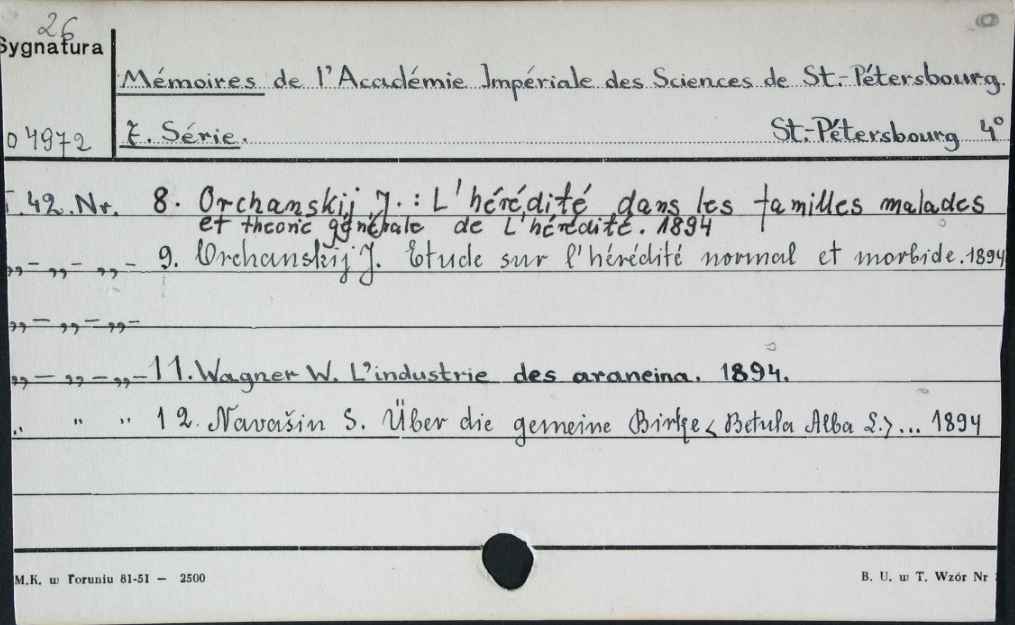 26
Sygnatura
Mémoires de l'Académie Impériale des Sciences de St.-Pétersbourg.
04972
7. Série. St.-Pétersbourg 4°
T.42.Nr. 8. Orchanskij J. : L'hérédité dans les familles malades
et theorie générale de L'hérédité. 1894
„ – „ – „ – 9. Orchanskij J. Etude sur l'hérédité normal et morbide. 1894
„ – „ – „ –
„ – „ – „ – 11. Wagner W. L'industrie des araneina. 1894.
„ „ „ 12. Navašin S. Über die gemeine Birke < Betula Alba L.> ... 1894
M.K. w Toruniu 81-51 — 2500
B. U. w T. Wzór Nr